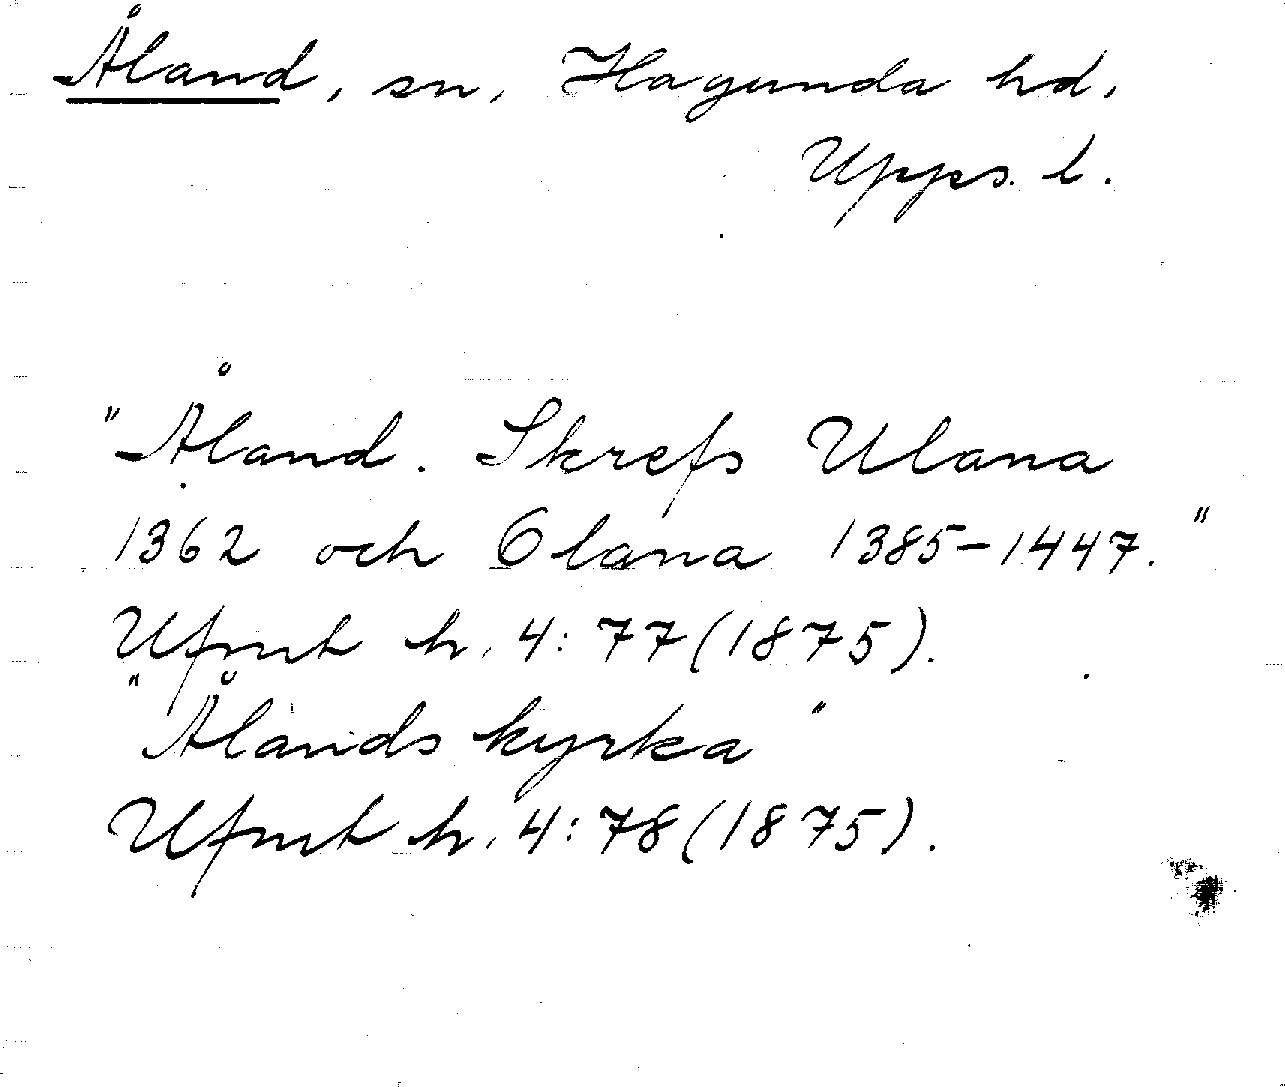 Åland, sn, Hagunda hd,
Upps. l.
"Åland. Skrefs Ulana
1362 och Olana 1385–1447."
Ufmt h. 4:77(1875).
"Ålands kyrka"
Ufmt h. 4:78(1875).